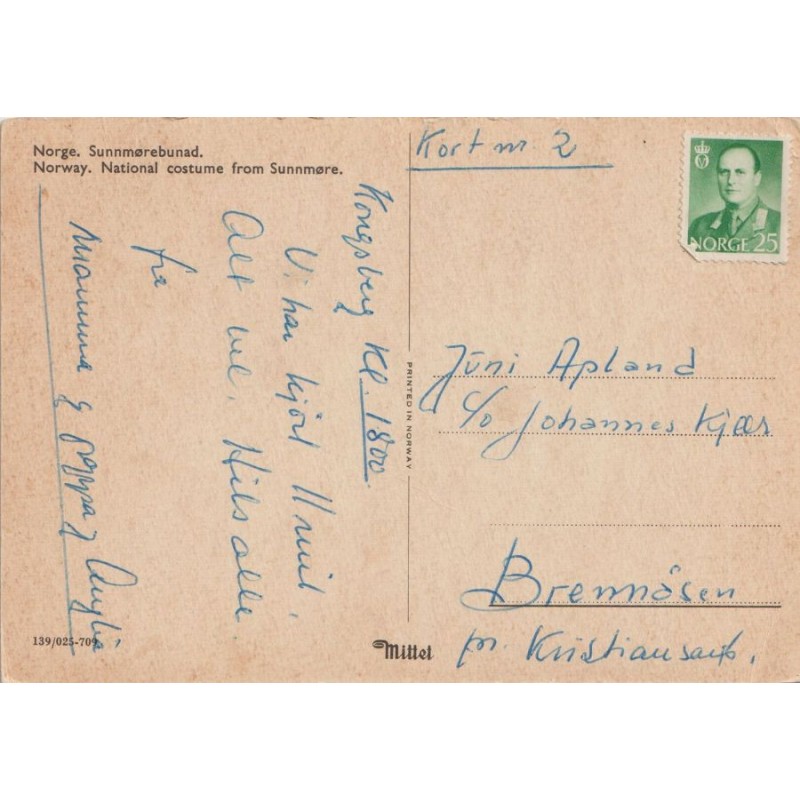 Norge. Sunnmørebunad.
Norway. National costume from Sunnmøre.
Kongsberg Kl. 1800.
Vi har kjørt 11 mil.
Alt vel. Hils alle.
fra
Mamma & pappa &
139/025-709
PRINTED IN NORWAY
Mittet
Kort nr. 2
NORGE 25
Jüni Apland
c/o Johannes Kjær
Brennåsen
pr. Kristiansand.